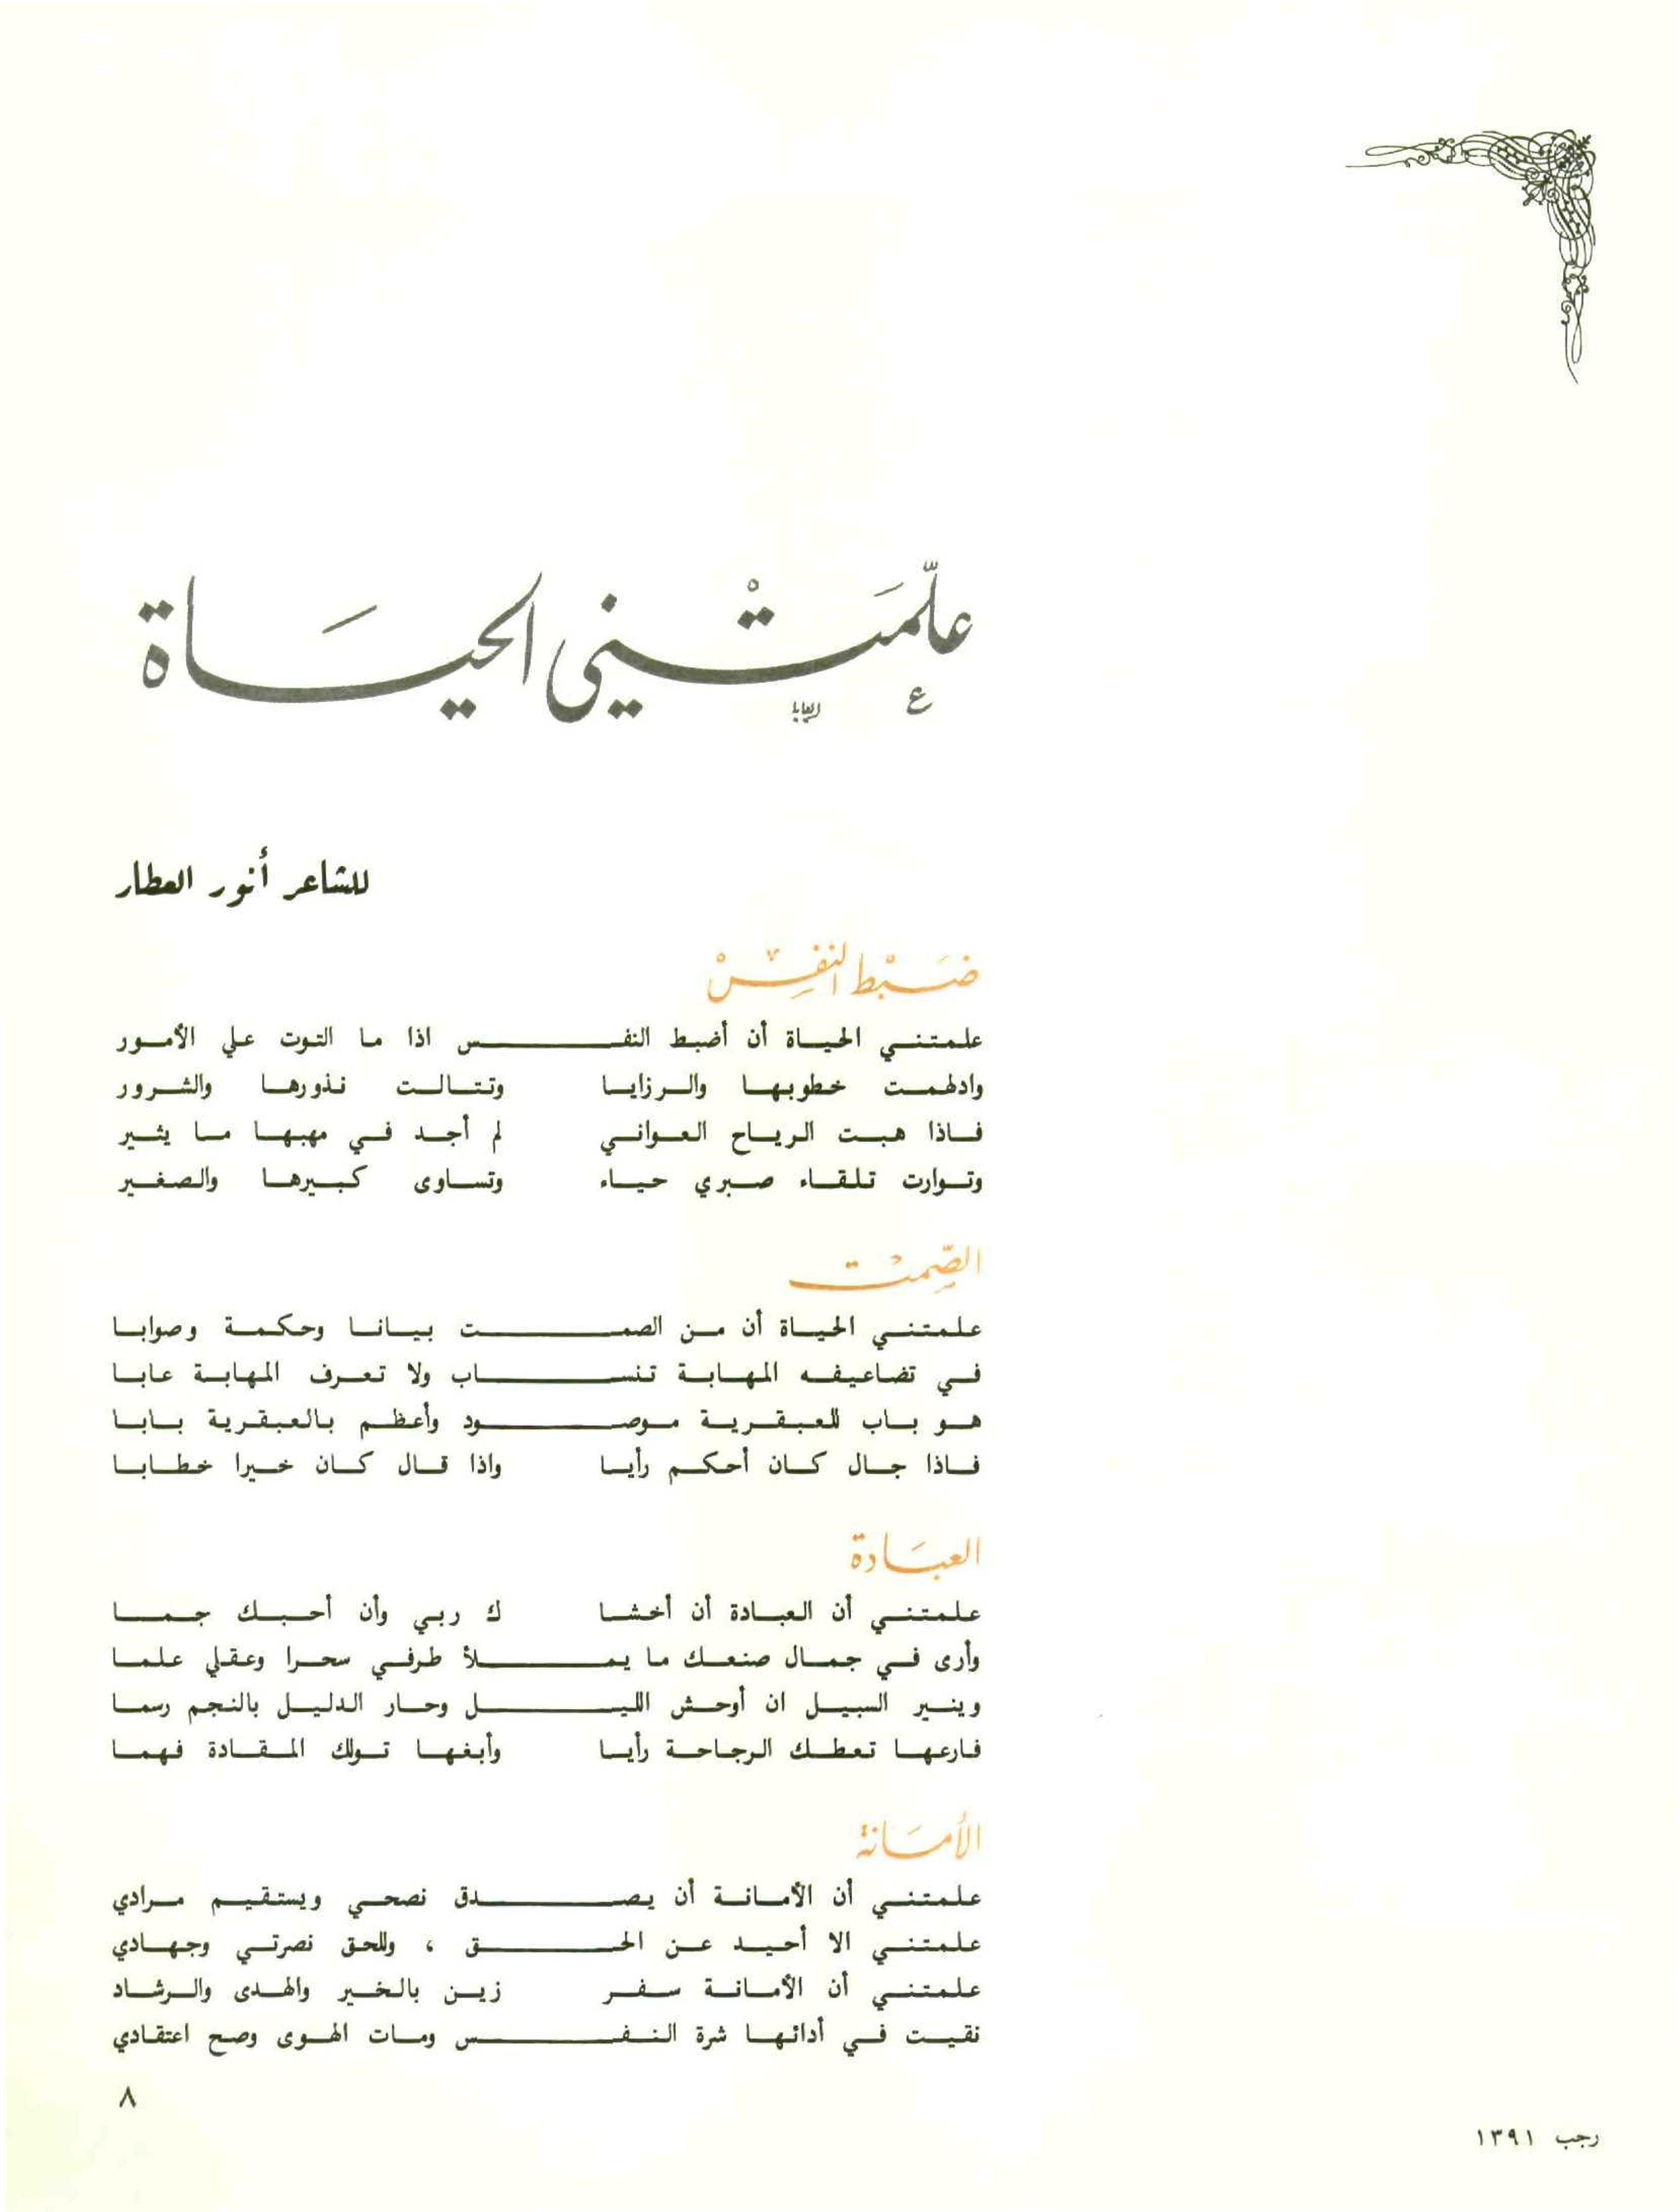 علّمَتْني الحيَاة
للشاعر أنور العطار
ضَبْط النفسْ
علمتني الحياة أن أضبط النفس اذا ما التوت علي الأمور
وادلهمت خطوبها والرزايا وتتالت نذورها والشرور
فاذا هبت الرياح العواني لم أجد في مهبها ما يثير
وتوارت تلقاء صبري حياء وتساوى كبيرها والصغير
الصّمتْ
علمتني الحياة أن من الصمت بيانا وحكمة وصوابا
في تضاعيفه المهابة تنساب ولا تعرف المهابة عابا
هو باب للعبقرية موصود وأعظم بالعبقرية بابا
فاذا جال كان أحكم رأيا واذا قال كان خيرا خطابا
العبَادة
علمتني أن العبادة أن أخشاك ربي وأن أحبك جما
وأرى في جمال صنعك ما يملأ طرفي سحرا وعقلي علما
وينير السبيل ان أوحش الليل وحار الدليل بالنجم رسما
فارعها تعطك الرجاحة رأيا وأبغها تولك المقادة فهما
الأمَانة
علمتني أن الأمانة أن يصدق نصحي ويستقيم مرادي
علمتني الا أحيد عن الحق ، وللحق نصرتي وجهادي
علمتني أن الأمانة سفر زين بالخير والهدى والرشاد
نقيت في أدائها شرة النفس ومات الهوى وصح اعتقادي
٨
رجب ١٣٩١